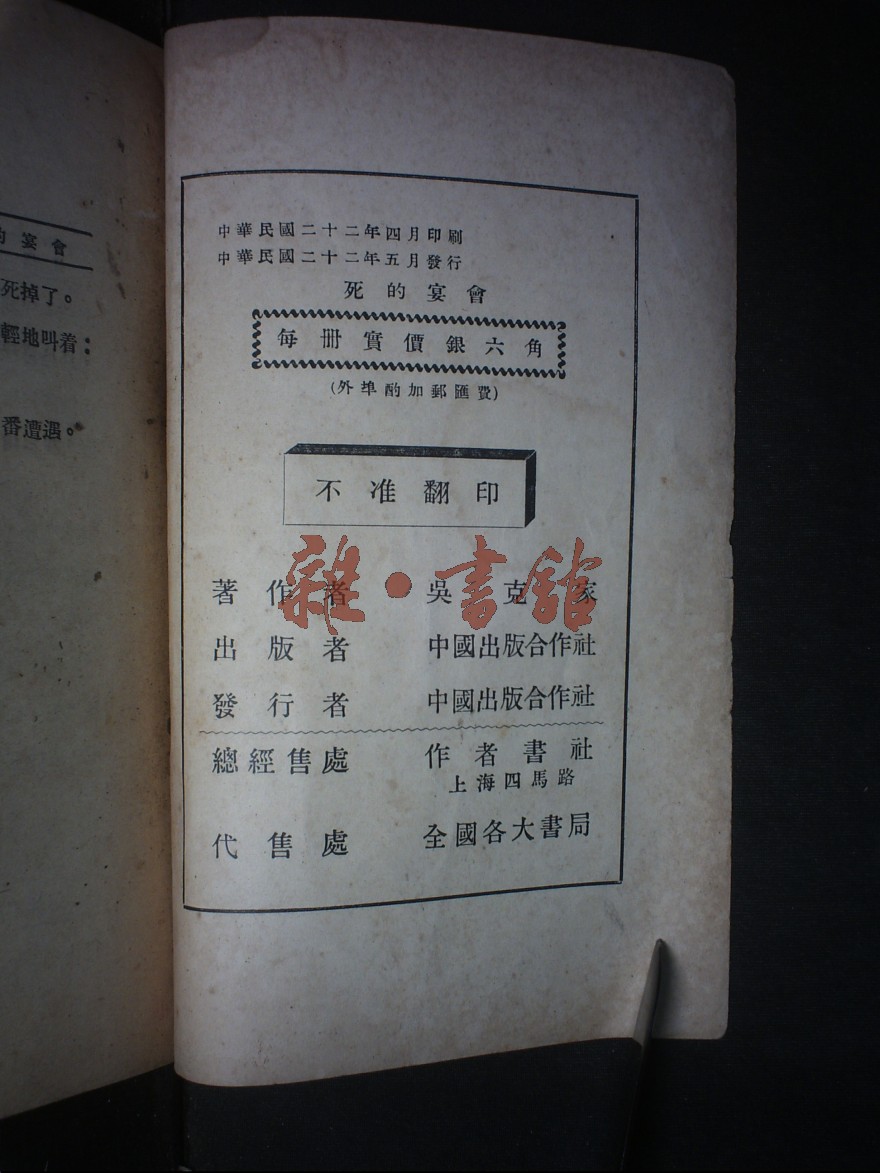 的宴會
死掉了。
輕地叫着：
番遭遇。
中華民國二十二年四月印刷
中華民國二十二年五月發行
死的宴會
每册實價銀六角
(外埠酌加郵匯費)
不准翻印
著作者 吳克家
出版者 中國出版合作社
發行者 中國出版合作社
總經售處 作者書社
上海四馬路
代售處 全國各大書局
雜·書館